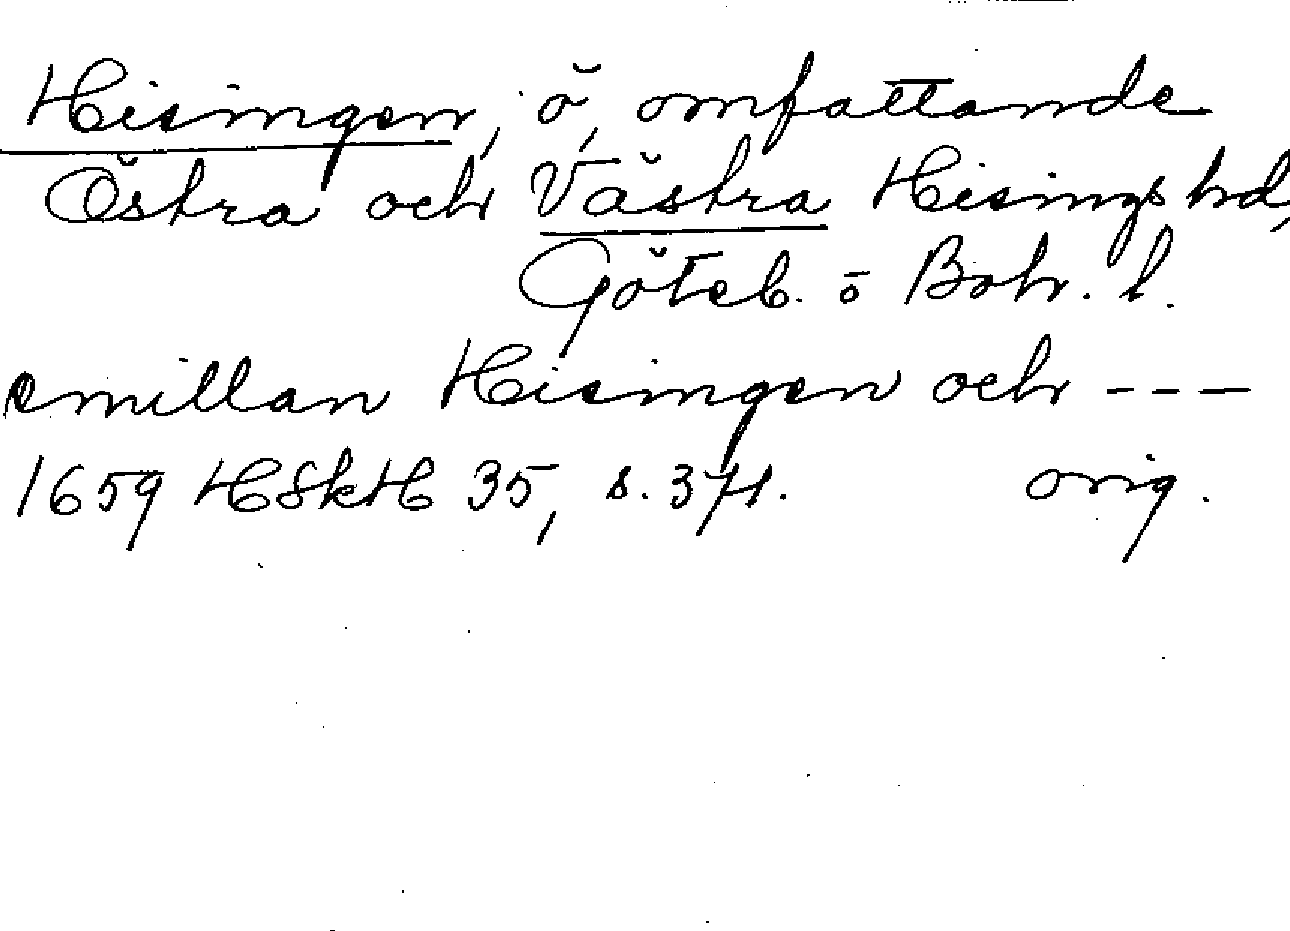 Hisingen, ö, omfattande
Östra och Västra Hisings hd,
Göteb. o Boh. l.
emillan Hisingen och ---
1659 HSkH 35, s. 371. orig.